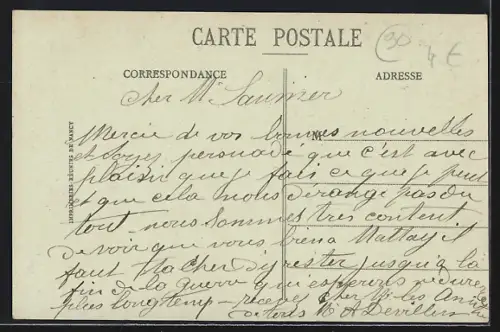 CARTE POSTALE
30
4 €
CORRESPONDANCE
ADRESSE
IMPRIMERIES RÉUNIES DE NANCY
Cher Mr Saunier
Mercie de vos bonnes nouvelles
et soyez persuadé que c'est avec
plaisir que je fais ce que je peut
et que cela nous dérange pas du
tout nous sommes tres content
de voir que vous
faut tacher d'y rester jusqu'a la
fin de la guerre qui esperons durera
plus longtemp recevez cher Mr les
de tous M A Devillers